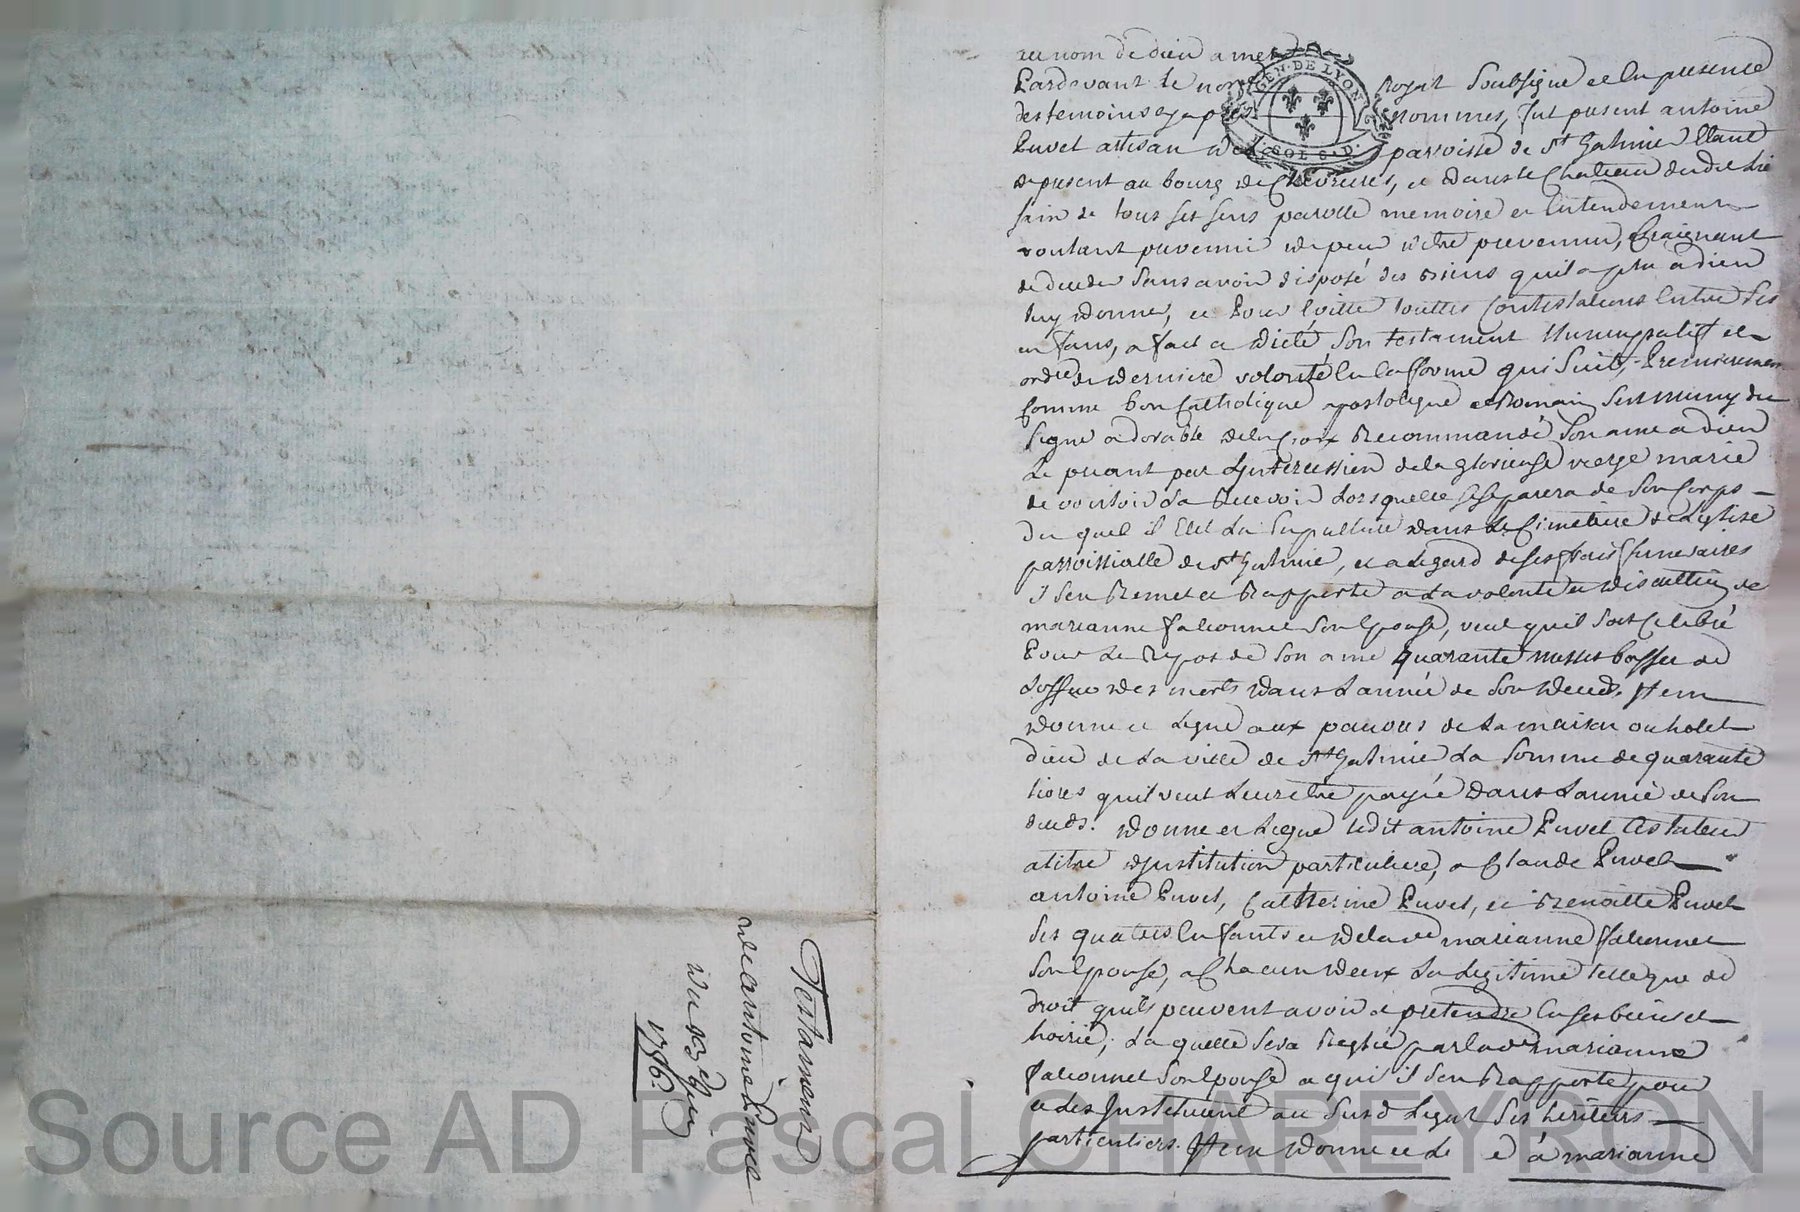 au nom de dieu amen
Pardevant le not Royal Soubsigné et En presence
des temoins cy apres nommes, fut present antoine
Puvel artisan de parroisse de St Galmier Etant
de present au bourg de Chevrieres, et dans le Chateau dudit lie
sain de tous ses sens parolle memoire et Entendement
voulant prevenir de peur d'etre prevenu, Craignant
de deceder sans avoir disposé des Biens quil a plu a dien
luy donner, et Pour Evitter touttes Contestations Entre Ses
enfans, a fait et dicté Son testament Nuncupatif et
ordre de derniere volonté En la forme qui Suit, Premierement
Comme bon Catholique apostolique et Romain Sest muny du
Signe adorable de la Croix Recommandé Son ame a dieu
Le priant par Lintercession de la glorieuse vierge marie
de vouloir La Recevoir Lorsquelle Se Separera de Son Corps
du quel il Elit La Sepulture dans Le Cimetiere de LEglise
parroissialle de St Galmier, et a legard de ses frais funeraires
il Sen Remet et Rapporte a La volonté et discretion de
marianne falconnet Son Epouse, veut quil Soit Celebré
Pour Le Repos de Son ame quarante messes basses de
Loffice des morts dans Lannée de Son deceds. Item
donne et Legue aux pauvres de La maison ou hotel
dieu de La ville de St Galmier La Somme de quarante
livres quil veut Leur etre payée dans Lannée de Son
deceds. donne et Legue ledit antoine Puvel testateur
a titre dInstitution particuliere, a Claude Puvel
antoine Puvel, Catherine Puvel, et Benoitte Puvel
Ses quatres Enfants et de lade marianne falconnet
Son Epouse, a Chacun deux La Legitime telle que de
droit quils peuvent avoir a pretendre En Ses biens et
hoirie; La quelle Sera Reglée par lade marianne
falconnet Son Epouse a qui il Sen Rapporte pour
ce Les Instituant au Susd Legat Ses heritiers
particuliers. Item donne et Le e a marianne
Testament
de antoine Puvel
du 8bre
1786.
GEN. DE LYON
SOL
Source AD Pascal CHAREYRON